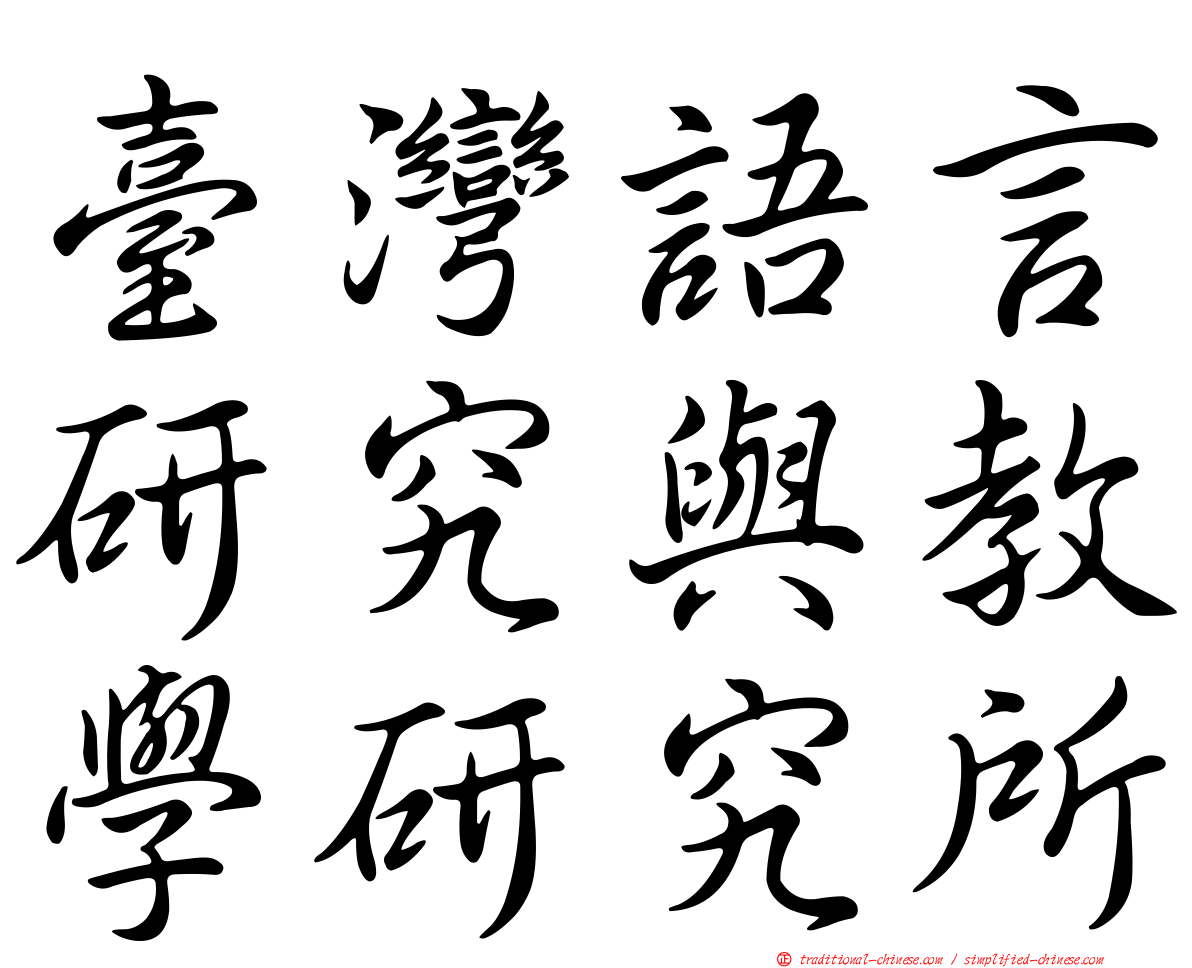 臺灣語言
研究與教
學研究所
㊣ traditional-chinese.com / simplified-chinese.com